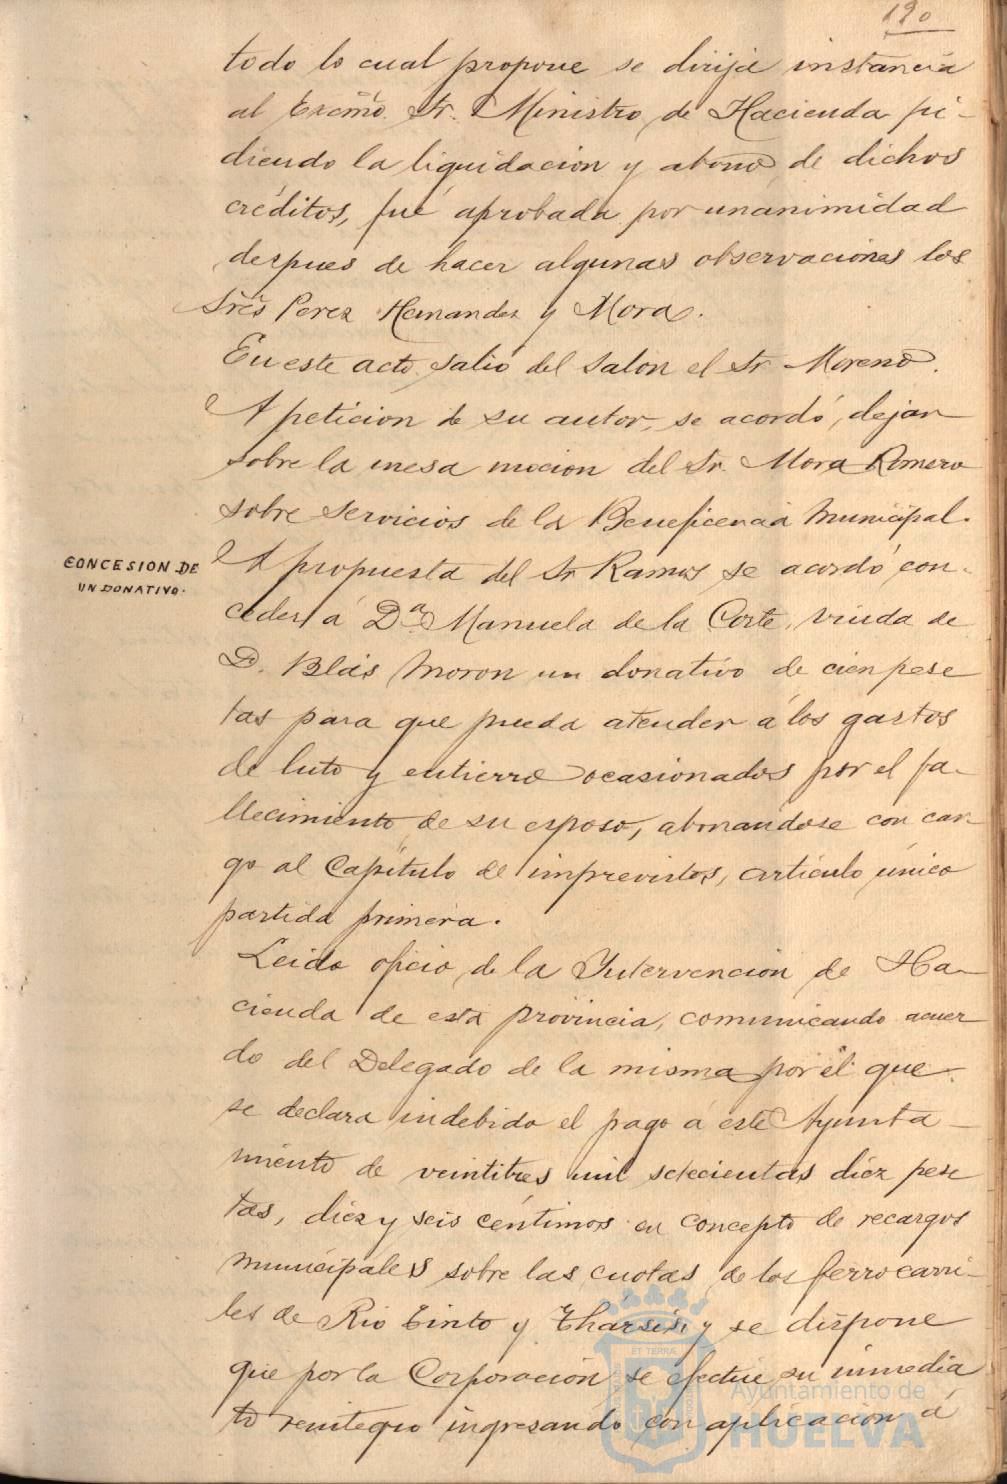 190
todo lo cual propone se dirija instancia
al Excmo. Sr. Ministro de Hacienda pi-
diendo la liquidacion y abono de dichos
créditos, fué aprobada por unanimidad
despues de hacer algunas observaciones los
Sres Perez Hernandez y Mora.
En este acto salió del salon el Sr Moreno.
A peticion de su autor, se acordó, dejar
sobre la mesa mocion del Sr. Mora Romero
sobre servicios de la Beneficencia Municipal.
CONCESION DE
UN DONATIVO.
A propuesta del Sr Ramos se acordó con-
ceder á Dª Manuela de la Corte, viuda de
D. Blás Moron un donativo de cien pese
tas para que pueda atender á los gastos
de luto y entierro ocasionados por el fa-
llecimiento de su esposo, abonandose con car-
go al Capítulo de imprevistos, artículo único
partida primera.
Leido oficio de la Intervencion de Ha-
cienda de esta provincia, comunicando acuer
do del Delegado de la misma por el que
se declara indebido el pago á este Ayunta-
miento de veintitres mil setecientas diez pese
tas, diez y seis céntimos en concepto de recargos
municipales sobre las cuotas de los ferrocarri-
les de Rio Tinto y Thársis, y se dispone
que por la Corporación se efectue su inmedia
to reintegro ingresando con aplicacion á
ET TERRA
Ayuntamiento de
HUELVA